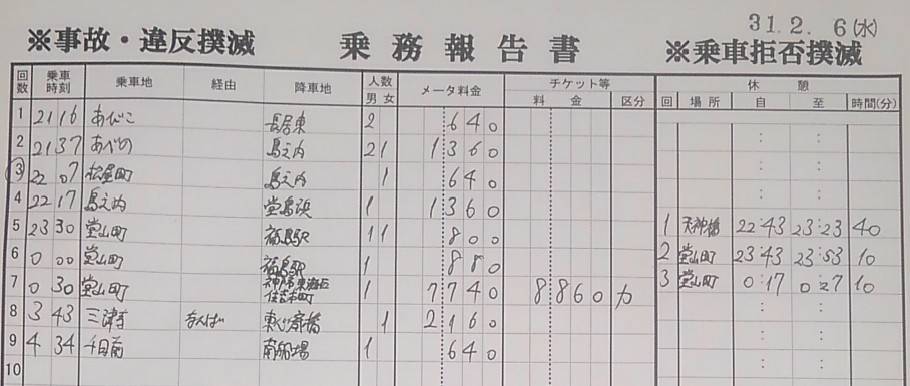 31.2. 6(水)
※事故・違反撲滅 乗務報告書 ※乗車拒否撲滅
回数 乗車時刻 乗車地 経由 降車地 人数 男 女 メータ料金 チケット等 料金 区分 休憩 回 場所 自 至 時間(分)
1 21 16 あびこ 長居東 2 640
2 21 37 あべの 島之内 2 1 1360
③ 22 07 松屋町 島之内 1 640
4 22 17 島之内 堂島浜 1 1360
5 23 30 堂山町 福島駅 1 1 800 1 天神橋 22:43 23:23 40
6 0 00 堂山町 福島駅 1 880 2 堂山町 23:43 23:53 10
7 0 30 堂山町 神戸市東灘区住吉本町 1 7740 8860 カ 3 堂山町 0:17 0:27 10
8 3 43 三津寺 なんば 東心斎橋 1 2160
9 4 34 千日前 南船場 1 640
10